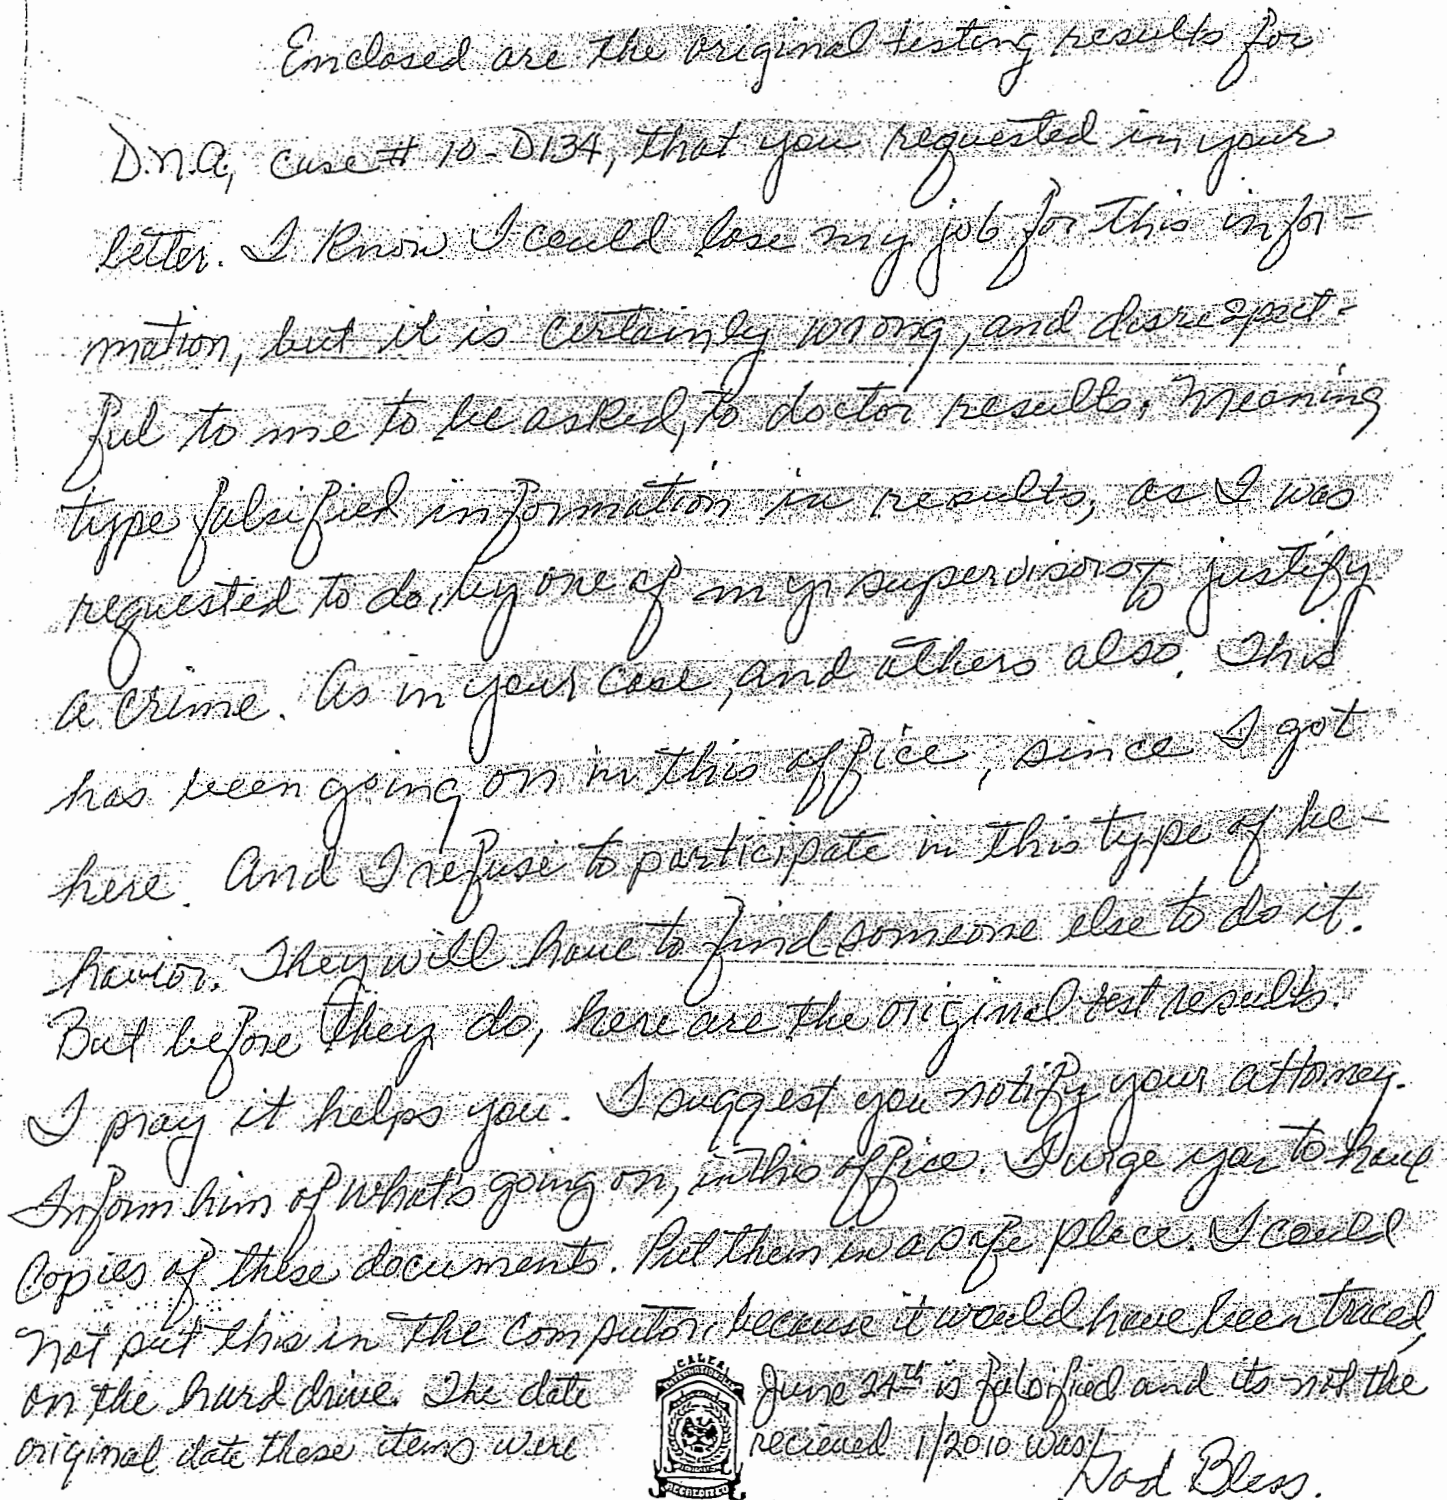 Enclosed are the original testing results for
D.N.A, case # 10-D134, that you requested in your
letter. I know I could lose my job for this infor-
mation, but it is certainly wrong, and disrespect-
ful to me to be asked, to doctor results, Meaning
type falsified information in results, as I was
requested to do, by one of my supervisors to justify
a crime. As in your case, and others also. This
has been going on in this office, since I got
here. And I refuse to participate in this type of be-
havior. They will have to find someone else to do it.
But before they do, here are the original test results.
I pray it helps you. I suggest you notify your attorney.
Inform him of what's going on, in this office. I urge you to have
Copies of these documents. Put them in a safe place. I could
Not put this in the computor, because it would have been traced,
on the hard drive. The date June 24th is falsified and its not the
original date these items were recieved 1/2010 was/
God Bless.
CALEA
ACCREDITED